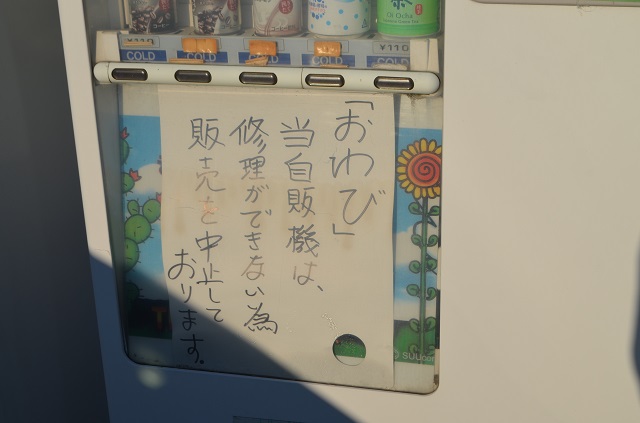 ¥110
¥110
COLD
COLD
COLD
COLD
COLD
Oi Ocha
「おわび」
当自販機は、
修理ができない為
販売を中止して
おります。